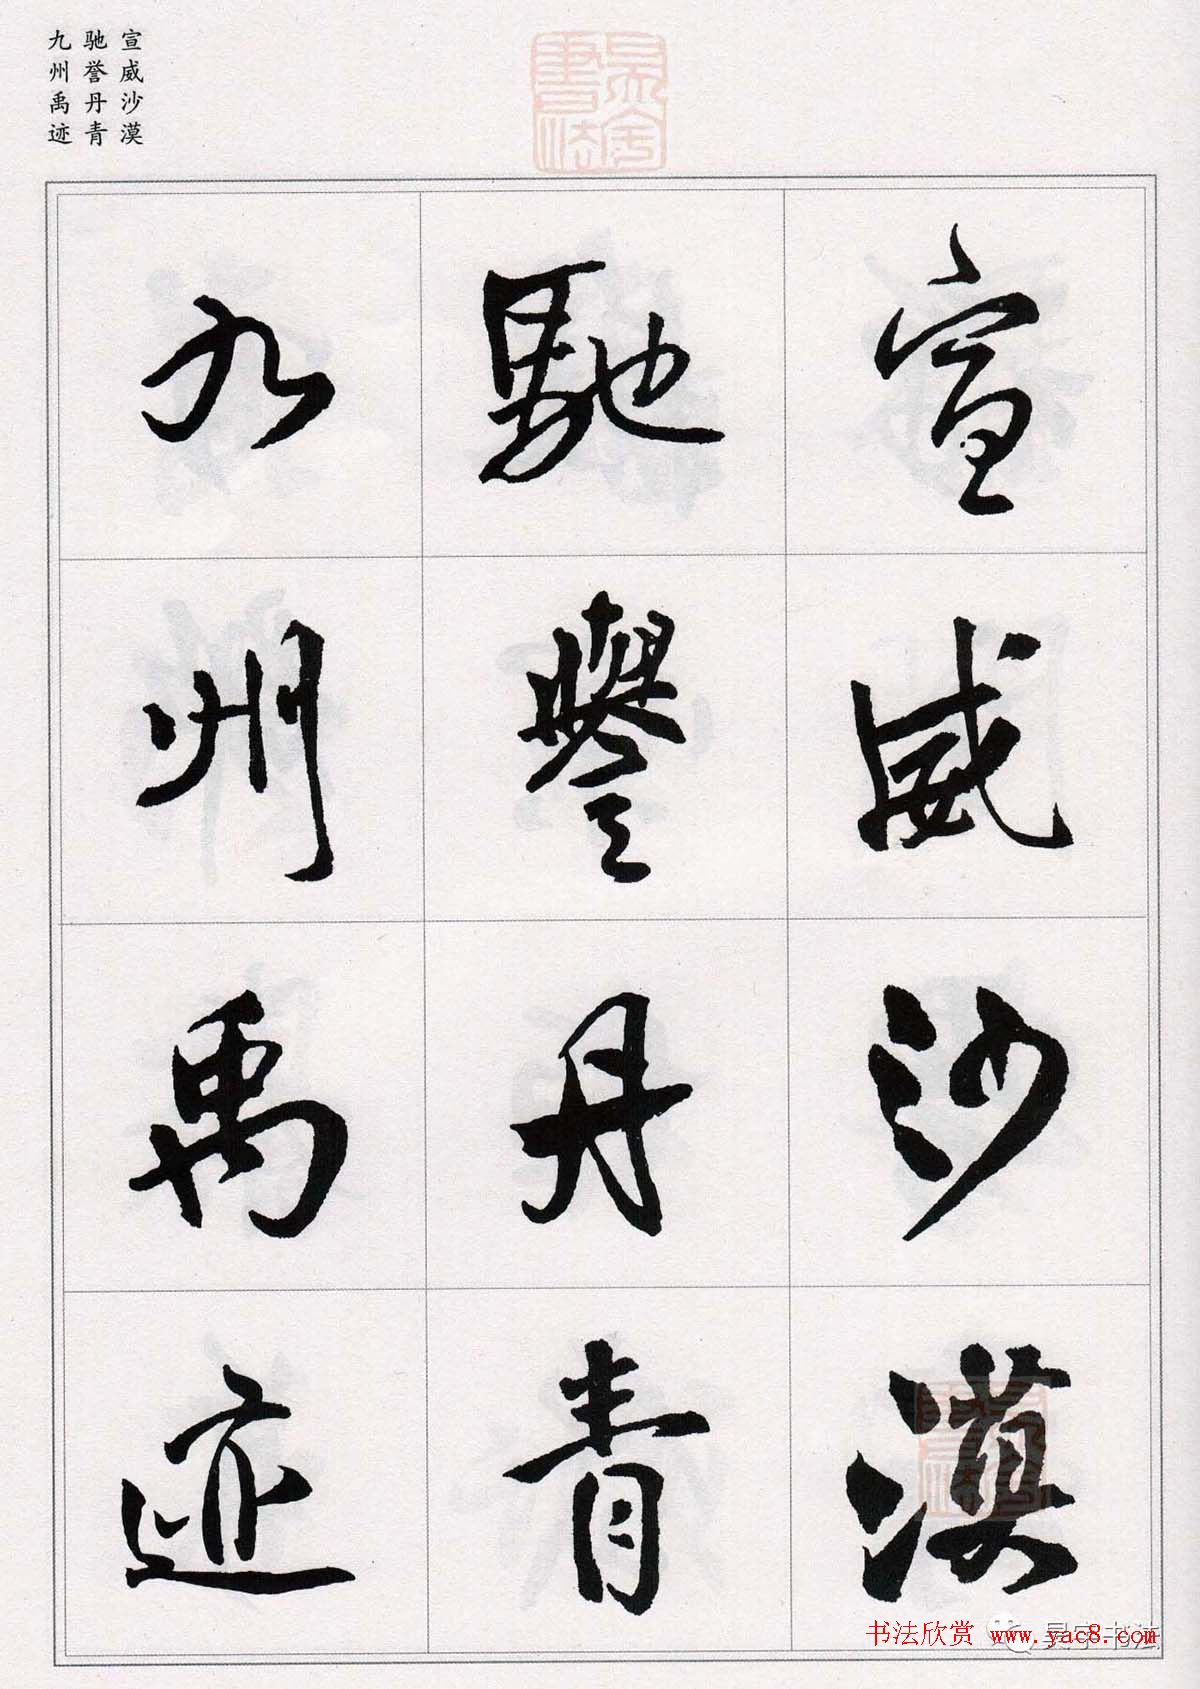 宣威沙漠
驰誉丹青
九州禹迹
宣威沙漠
馳譽丹青
九州禹迹
书法欣赏 www.yac8.com